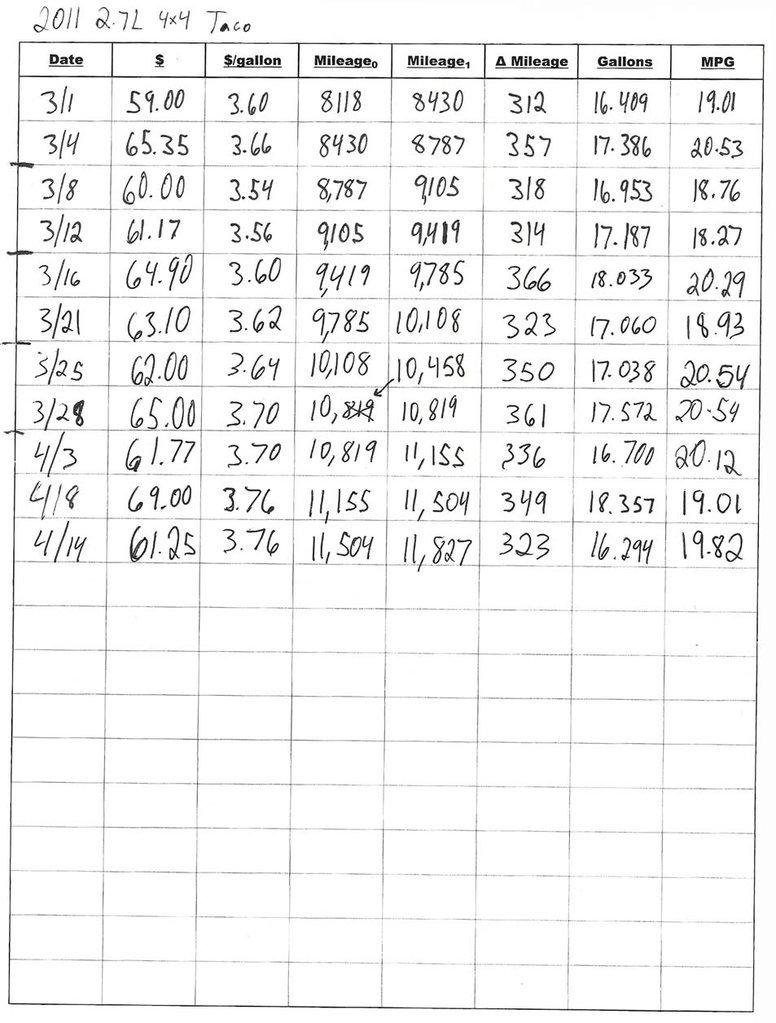 2011 2.7L 4x4 Taco
Date $ $/gallon Mileage₀ Mileage₁ Δ Mileage Gallons MPG
3/1 59.00 3.60 8118 8430 312 16.409 19.01
3/4 65.35 3.66 8430 8787 357 17.386 20.53
3/8 60.00 3.54 8,787 9,105 318 16.953 18.76
3/12 61.17 3.56 9,105 9,419 314 17.187 18.27
3/16 64.90 3.60 9,419 9,785 366 18.033 20.29
3/21 63.10 3.62 9,785 10,108 323 17.060 18.93
3/25 62.00 3.64 10,108 10,458 350 17.038 20.54
3/28 65.00 3.70 10,819 10,819 361 17.572 20.54
4/3 61.77 3.70 10,819 11,155 336 16.700 20.12
4/8 69.00 3.76 11,155 11,504 349 18.357 19.01
4/14 61.25 3.76 11,504 11,827 323 16.294 19.82